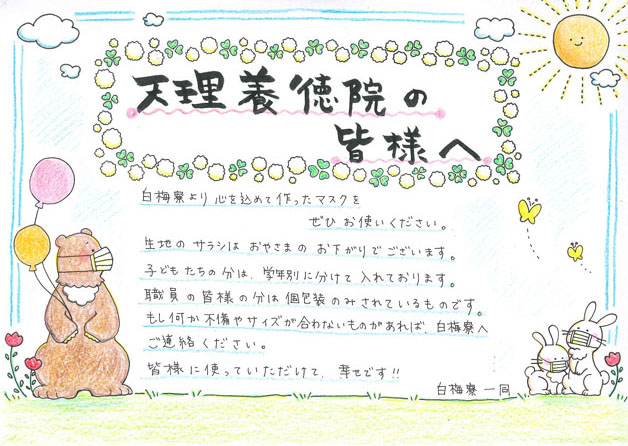 天理養徳院の
皆様へ
白梅寮より心を込めて作ったマスクを
ぜひお使いください。
生地のサラシはおやさまのお下がりでございます。
子どもたちの分は、学年別に分けて入れております。
職員の皆様の分は個包装のみされているものです。
もし何か不備やサイズが合わないものがあれば、白梅寮へ
ご連絡ください。
皆様に使っていただけて、幸せです!!
白梅寮一同